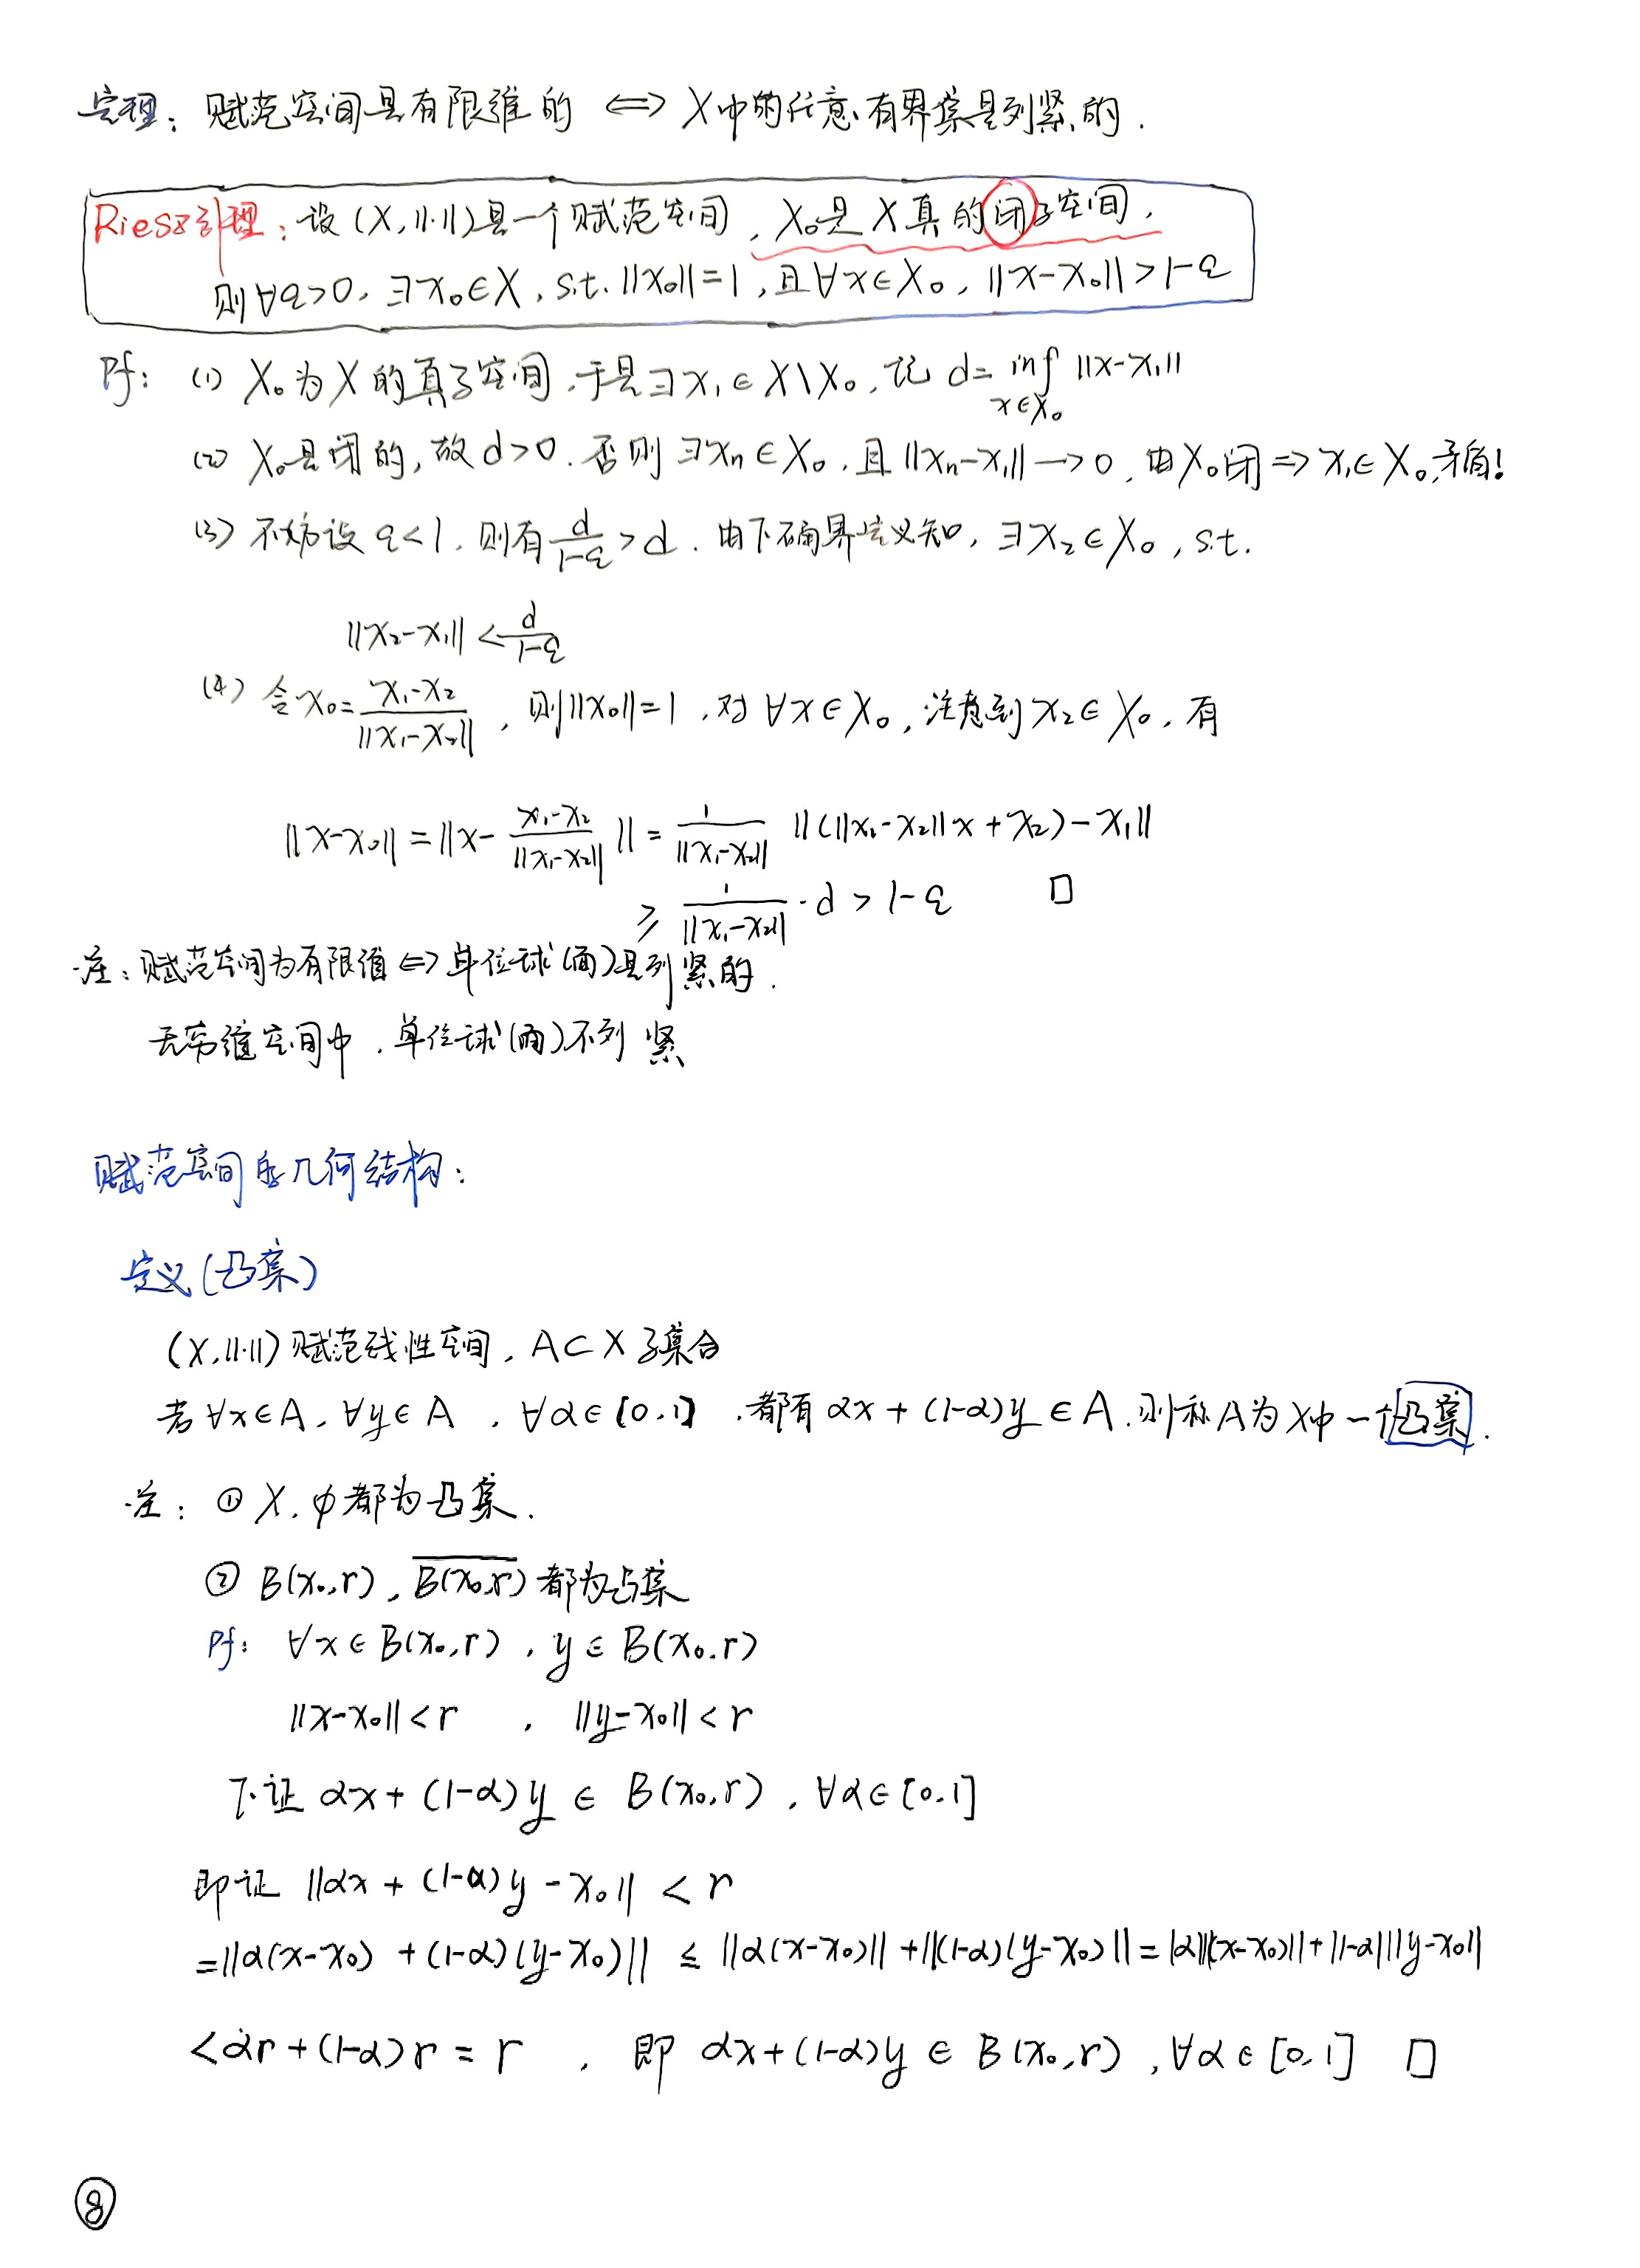 定理：赋范空间是有限维的 ⟺ X中的任意有界集是列紧的.
Riesz引理：设 (X, ||·||)是一个赋范空间, X₀是X真的闭子空间,
则∀ε>0, ∃x₀∈X, s.t. ||x₀||=1, 且∀x∈X₀, ||x-x₀||>1-ε
Pf: (1) X₀为X的真子空间,于是∃x₁∈X\X₀, 记 d= inf_{x∈X₀} ||x-x₁||
(2) X₀是闭的, 故d>0. 否则∃xₙ∈X₀, 且||xₙ-x₁||→0, 由X₀闭⇒x₁∈X₀,矛盾!
(3) 不妨设ε<1, 则有 d/(1-ε) > d. 由下确界定义知, ∃x₂∈X₀, s.t.
||x₂-x₁|| < d/(1-ε)
(4) 令x₀= (x₁-x₂)/||x₁-x₂||, 则||x₀||=1, 对∀x∈X₀, 注意到x₂∈X₀, 有
||x-x₀|| = ||x- (x₁-x₂)/||x₁-x₂|| || = 1/||x₁-x₂|| ||(||x₁-x₂||x+x₂)-x₁||
≥ 1/||x₁-x₂|| · d > 1-ε □
注：赋范空间为有限维⟺单位球(面)是列紧的.
无穷维空间中, 单位球(面)不列紧
赋范空间的几何结构:
定义(凸集)
(X,||·||)赋范线性空间, A⊂X子集合
若∀x∈A, ∀y∈A, ∀α∈[0,1], 都有 αx+(1-α)y∈A, 则称A为X中一个凸集.
注: ① X, φ都为凸集.
② B(x₀,r), \overline{B(x₀,r)} 都为凸集
Pf: ∀x∈B(x₀,r), y∈B(x₀,r)
||x-x₀||<r , ||y-x₀||<r
下证 αx+(1-α)y ∈ B(x₀,r), ∀α∈[0,1]
即证 ||αx+(1-α)y-x₀|| < r
=||α(x-x₀)+(1-α)(y-x₀)|| ≤ ||α(x-x₀)||+||(1-α)(y-x₀)||=|α|||(x-x₀)||+|1-α|||y-x₀||
<αr+(1-α)r = r , 即 αx+(1-α)y ∈ B(x₀,r), ∀α∈[0,1] □
⑧